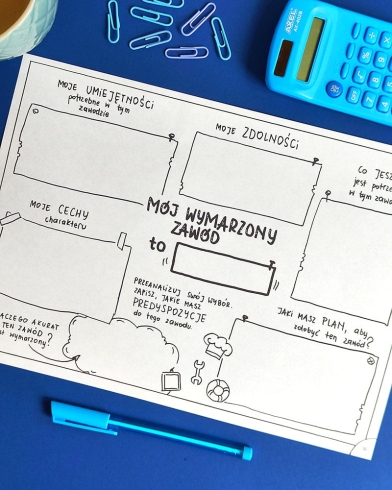 MOJE UMIEJĘTNOŚCI
potrzebne w tym
zawodzie
MOJE ZDOLNOŚCI
CO JESZ
jest potrze
w tym zawo
MOJE CECHY
charakteru
MÓJ WYMARZONY
ZAWÓD
to
PRZEANALIZUJ SWÓJ WYBÓR.
ZAPISZ, JAKIE MASZ
PREDYSPOZYCJE
do tego zawodu.
JAKI MASZ PLAN, aby
zdobyć ten zawód?
LACZEGO AKURAT
TEN ZAWÓD
st wymarzony?
AXEL